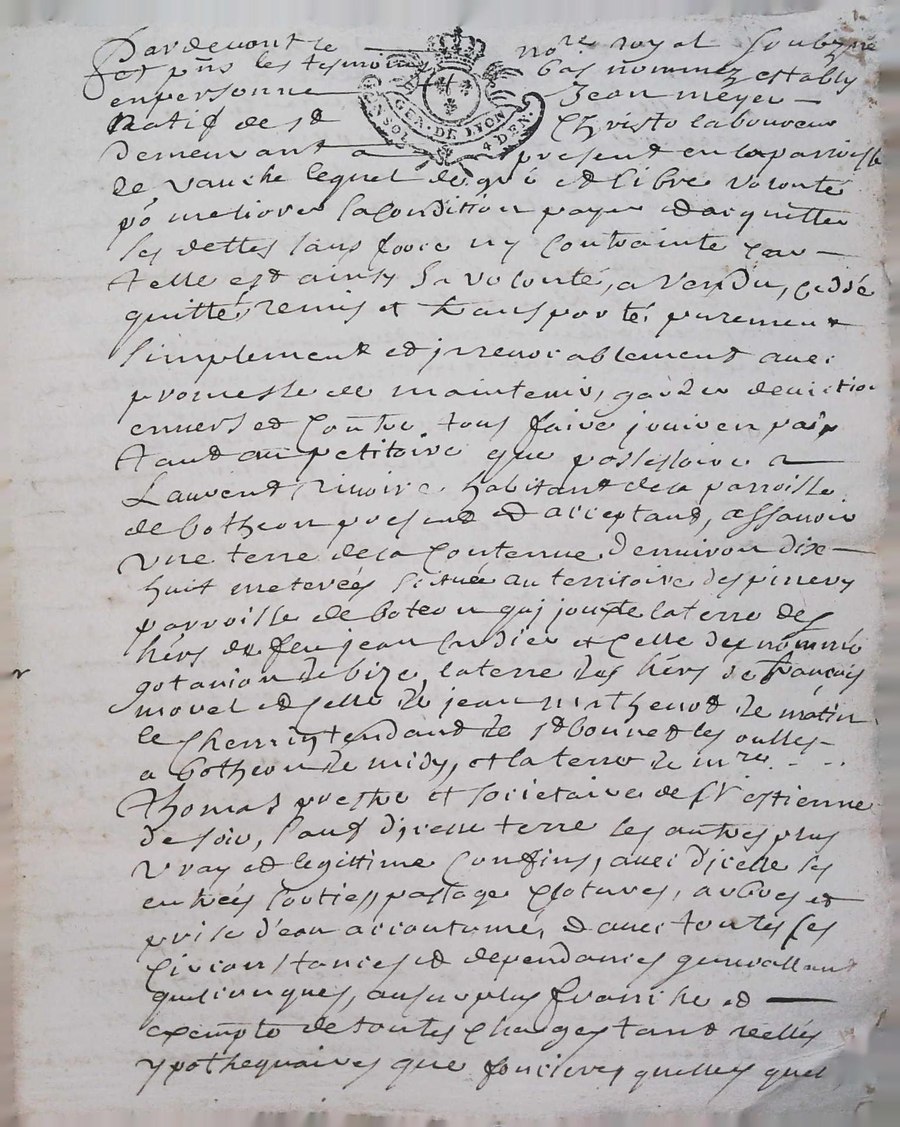 Pardevant le no.re royal soubz.né
et pñs les tesmoins bas nommez estably
en personne Jean meyer
Natif de st Christo laboureur
demeurant a present en la parroisse
de vauche lequel de gré et libre volonté
po meliorer sa condition payer et acquitter
ses dettes sans force ny contrainte car
telle est ainsy sa volonté, a vendu, ceddé
quitté, remis et transporté purement
simplement et jrrevocablement avec
promesse de maintenir, garder deviction
envers et contre tous faire jouir en paix
tant au petitoire que possessoire a
Laurent habitant de la parroisse
de botheon present et acceptant, assavoir
une terre de la contenue denviron dix
huit meterées scituée au territoire despinevy
parroisse de boteon quj jouxte la terre des
hérs de feu jean et celle des nommé
la terre des hérs de françois
movel et celle de jean mathevot de matin
le chemin tendant de st bonnet les oulles
a botheon de midy, et la terre de mre
Thomas prestre et societaire de st estienne
de soir, sauf djcelle terre les autres plus
vray et legittime confins, avec djcelle ses
entrées sorties, passage clotures, arbres et
prise d'eau accoutumé, et avec toutes ses
circonstances et dependances generallement
quelconques, au surplus franche et
exempte de toutes charges tant reelles
ypothequaires que foncieres quelles quel
GEN. DE LYON
SOL
4 DEN.